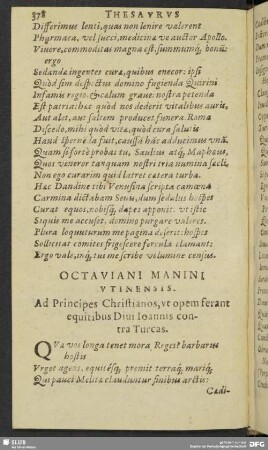 378 THESAVRVS
Differimus lenti, quasi non lenire valerent
Pharmaca, vel succi, medicina ve auctor Apollo.
Viuere, commoditas magna est, summumq́; bonũ:
ergo
Sedanda ingentes cura, quibus enecor: ipsi
Quòd sim despectus domino fugienda Quirini
Infamis regio: & cælum graue: nostra petenda
Est patria: hac quòd nos dederit vitalibus auris,
Aut alat, aut saltem producet funera. Roma
Discedo, mihi quòd vita, quòd cura salutis
Haud sperne da fuit, causa hàc adducimus vnâ.
Quam si fortè probas tu, Saulius atq́;, Maphæus,
Quos venerer tanquam nostri tria numina sæcli,
Non ego curarim quid latret cætera turba.
Hac Dandine tibi Venusina scripta camœna
Carmina dictabam Senis, dum sedulus hospes
Curat equos, nobisq́;, dapes apponit: vt istic
Siquis me accuset, domino purgare valeres.
Plura loquuturum me pagina deserit: hospes
Sollicitat comites frigescere fercula clamans:
Ergo vale, inq́; tuo me scribe volumine census.
OCTAVIANI MANINI
VTINENSIS.
Ad Principes Christianos, vt opem ferant
equitibus Diui Ioannis con-
tra Turcas.
QVa vos longa tenet mora, Reges? barbarus
hostis
Vrget agens, equitésq́;, premit terraq́;, mariq́;,
Qui pauci Melitæ clauduntur finibus arctis:
Cadi-
SLUB
DFG